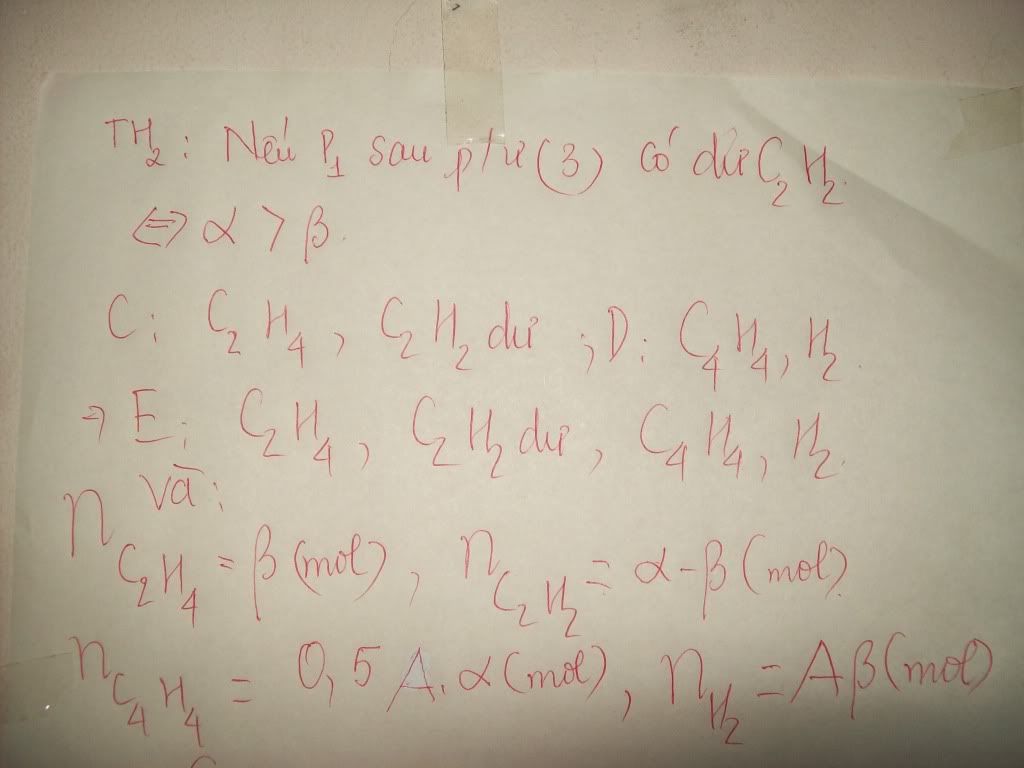 TH₂: Nếu P₁ sau p/ư (3) có dư C₂H₂.
⇔ α > β.
C: C₂H₄, C₂H₂ dư ; D: C₄H₄, H₂.
→ E: C₂H₄, C₂H₂ dư, C₄H₄, H₂.
và:
n C₂H₄ = β (mol), n C₂H₂ = α-β (mol).
n C₄H₄ = 0,5 A.α (mol), n H₂ = Aβ (mol)